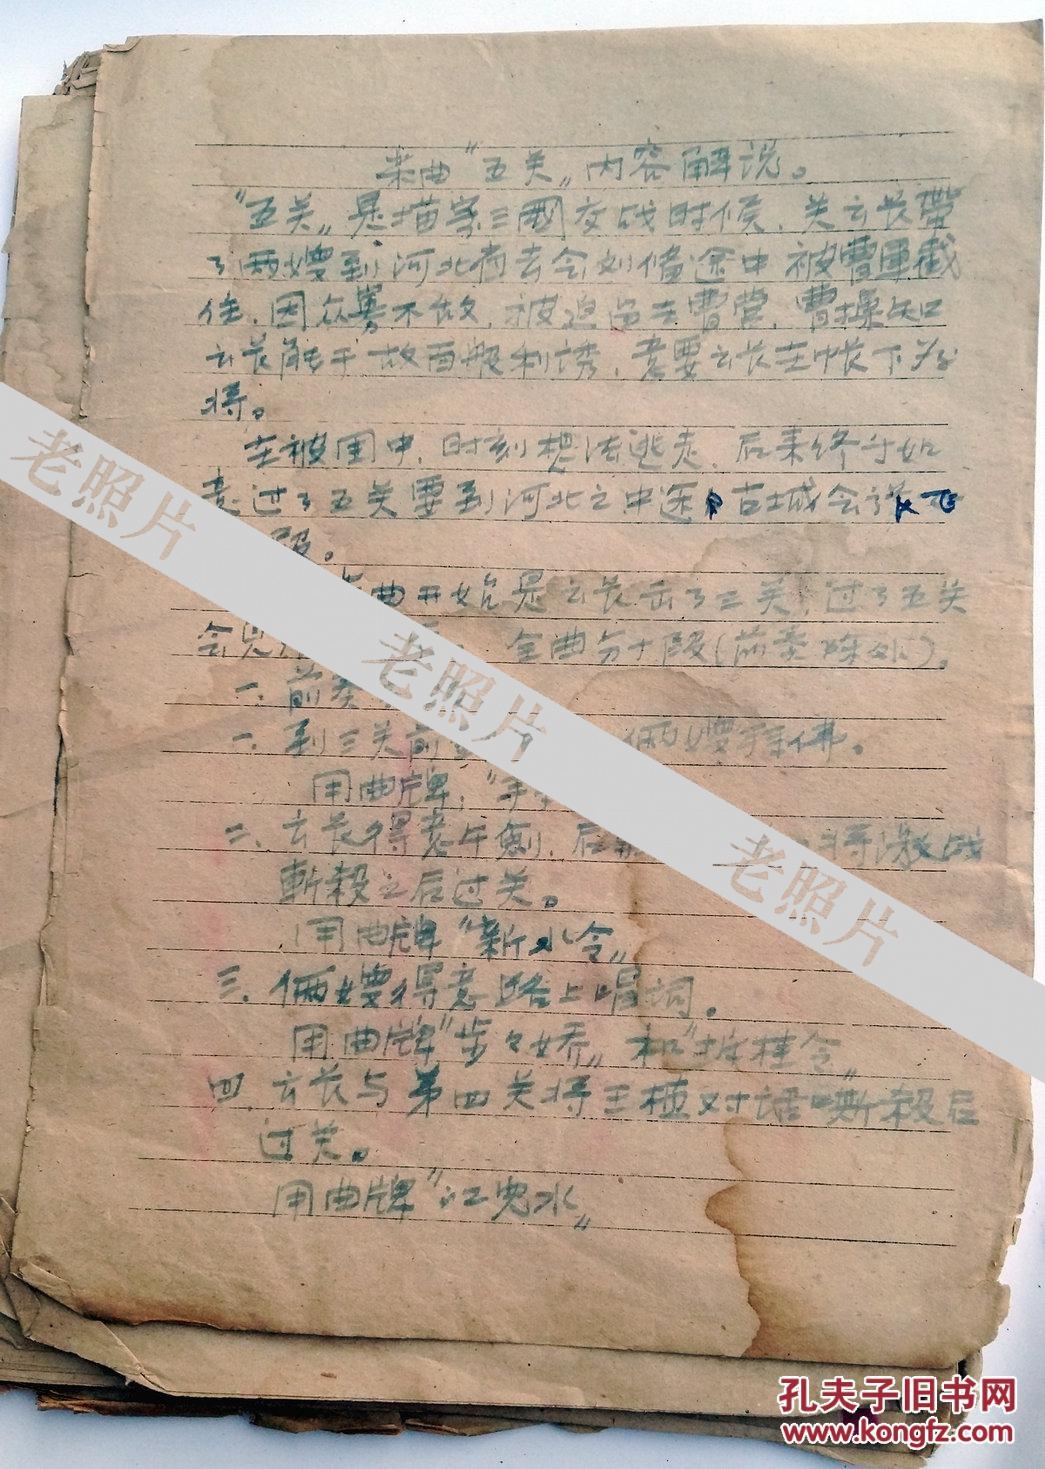 采曲“五关”内容解说。
“五关”是描写三國交战时候，关云长帶
了两嫂到河北省去会刘備途中被曹軍截
住，因众寡不敌，被迫留去曹营，曹操知
云长能干故百般利诱，老要云长在帐下为
将。
在被围中，时刻想法逃走，后来终于如
意过了五关要到河北之中途，古城会张飞
段。
曲开始是云长击了三关，过了五关
会兄 全曲分十段（前奏除外）。
一、前奏
一、到三关前 俩嫂拜佛。
用曲牌，“
二、云长得意 后 将激战
斬殺之后过关。
用曲牌“新水令”
三、俩嫂得意路上唱词。
用曲牌“步々娇”和“折桂令”
四、云长与第四关将王植对话嘶殺后
过关。
用曲牌“江兒水”
老照片
老照片
老照片
孔夫子旧书网
www.kongfz.com